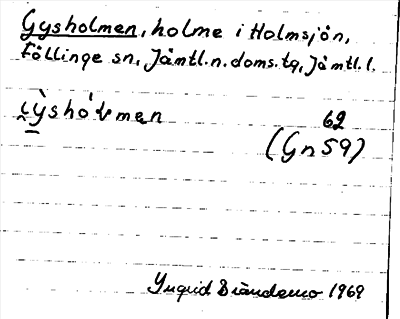 Gysholmen, holme i Holmsjön,
Föllinge sn, Jämtl.n.doms.tg, Jämtl.l.
62
(Gn 59)
Ingrid 1969